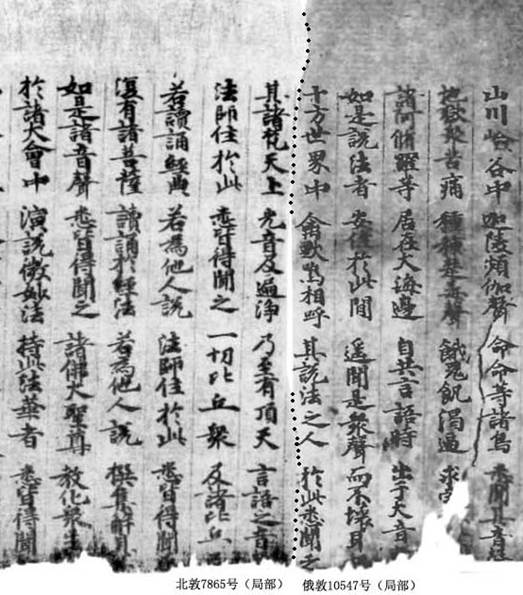 山川嶮谷中 迦陵頻伽聲 命命等諸鳥 悉聞其音
地獄眾苦痛 種種楚毒聲 餓鬼飢渴逼 求
諸阿脩羅等 居在大海邊 自共言語時 出于大音
如是說法者 安住於此間 遙聞是眾聲 而不壞耳
十方世界中 禽獸鳴相呼 其說法之人 於此悉聞之
其諸梵天上 光音及遍淨 乃至有頂天 言語之音
法師住於此 悉皆得聞之 一切比丘眾 及諸比丘
若讀誦經典 若為他人說 法師住於此 悉皆得聞
復有諸菩薩 讀誦於經法 若為他人說 撰集解其
如是諸音聲 悉皆得聞之 諸佛大聖尊 教化眾生
於諸大會中 演說微妙法 持此法華者 悉皆得聞
北敦7865号（局部） 俄敦10547号（局部）